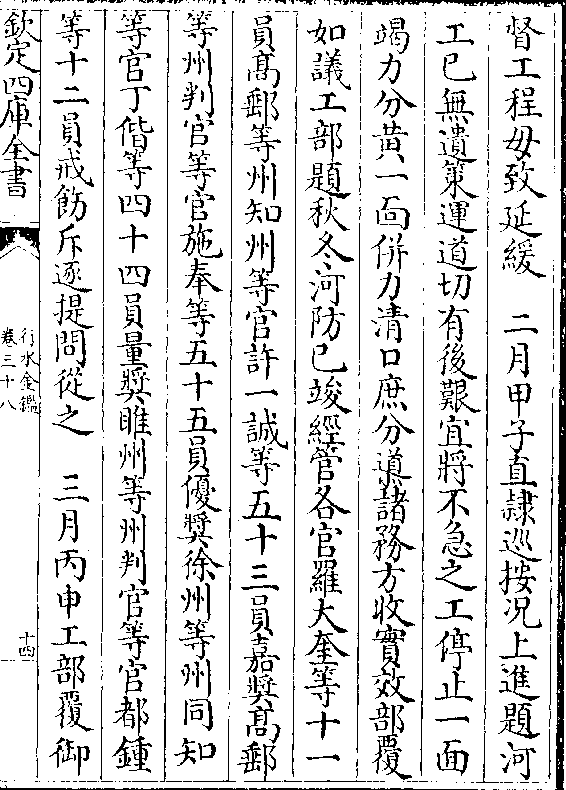 督工程毋致延緩　二月甲子直隸巡按况上進題河
工已無遺策運道切有後艱宜將不急之工停止一面
竭力分黄一面併力清口庶分導諸務方收實效部覆
如議工部題秋冬河防已竣經管各官羅大奎等十一
員髙郵等州知州等官許一誠等五十三員嘉奬髙郵
等州判官等官施奉等五十五員優奬徐州等州同知
等官丁偕等四十四員量奬睢州等州判官等官都鍾
等十二員戒飭斥逐提問從之　三月丙申工部覆御
欽定四庫全書
行水金鑑
卷三十八
十四